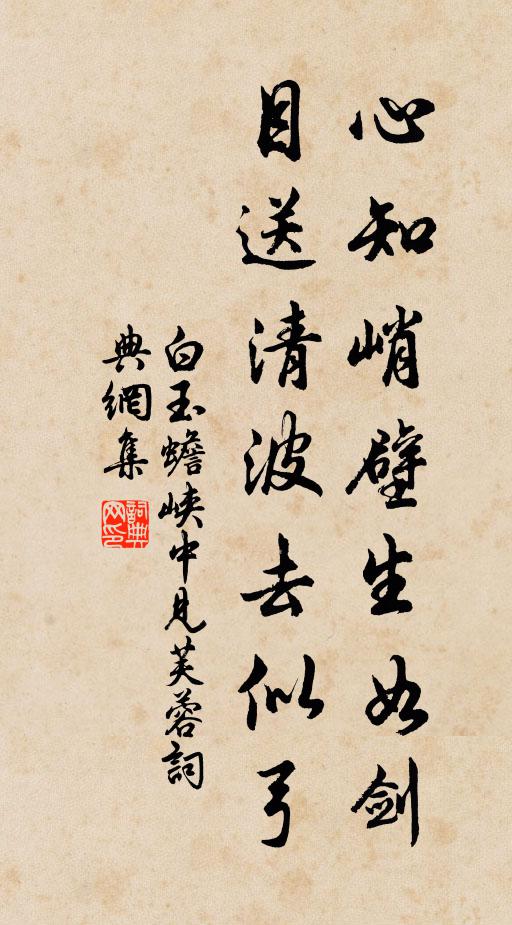 心知峭壁生如剑
目送清波去似弓
白玉蟾峡中見芙蓉詞
典網集
詞典网印